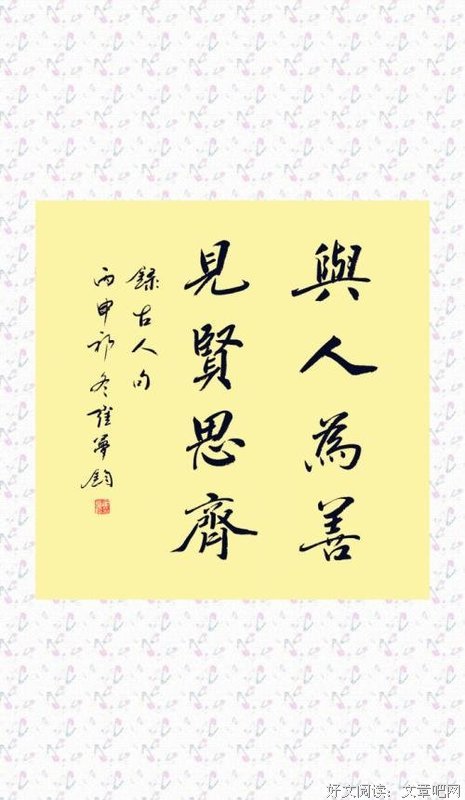 與人為善
見賢思齊
錄古人句
丙申初冬
好文阅读：文章吧网